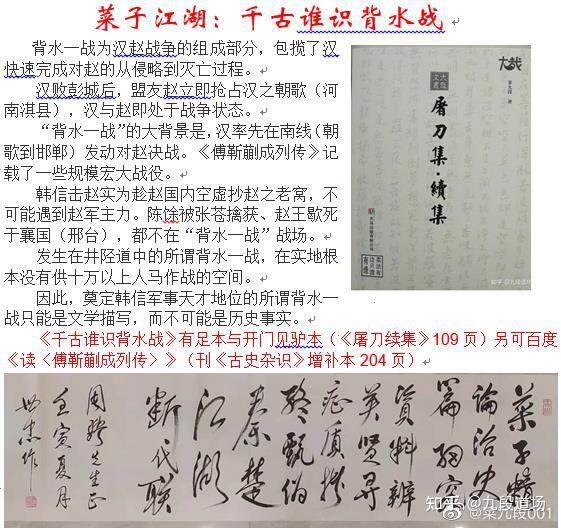 菜子江湖：千古谁识背水战
背水一战为汉赵战争的组成部分，包揽了汉
快速完成对赵的从侵略到灭亡过程。
汉败彭城后，盟友赵立即抢占汉之朝歌（河
南淇县），汉与赵即处于战争状态。
“背水一战”的大背景是，汉率先在南线（朝
歌到邯郸）发动对赵决战。《傅靳蒯成列传》记
载了一些规模宏大战役。
韩信击赵实为趁赵国内空虚抄赵之老窝，不
可能遇到赵军主力。陈馀被张苍擒获、赵王歇死
于襄国（邢台），都不在“背水一战”战场。
发生在井陉道中的所谓背水一战，在实地根
本没有供十万以上人马作战的空间。
因此，奠定韩信军事天才地位的所谓背水一
战只能是文学描写，而不可能是历史事实。
《千古谁识背水战》有足本与开门见驴本（《屠刀续集》109 页）另可百度
《读〈傅靳蒯成列传〉》（刊《古史杂识》增补本 204 页）
屠刀集·續集
知乎 @九段道场
菜子
论治史
资料辨
英贤寻
甄伪
秦楚
江湖
断代联
先生正
壬寅夏月
世忠作
知乎 @九段道场
@菜九段001